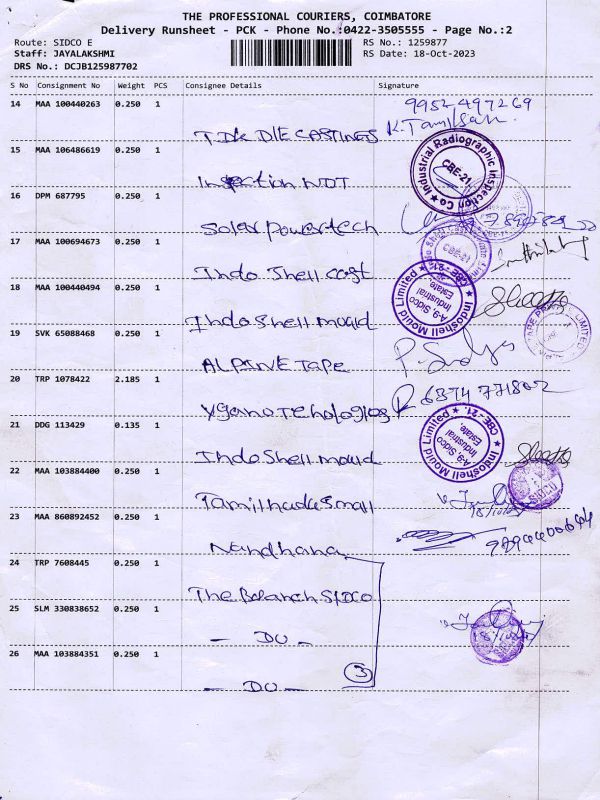 THE PROFESSIONAL COURIERS, COIMBATORE
Delivery Runsheet - PCK - Phone No.:0422-3505555 - Page No.:2
Route: SIDCO E
RS No.: 1259877
Staff: JAYALAKSHMI
RS Date: 18-Oct-2023
DRS No.: DCJB125987702
S No Consignment No Weight PCS Consignee Details Signature
14 MAA 100440263 0.250 1
9952497269
TDK DIE CASTINGS
15 MAA 106486619 0.250 1
Industrial Radiographic Inspection Co ★
CBE-21
Inspection NDT
16 DPM 687795 0.250 1
Solar Powertech
17 MAA 100694673 0.250 1
CBE-21
Indo Shell cast
18 MAA 100440494 0.250 1
Indoshell Mould Limited ★ CBE-21. ★
A-9, Sidco
Industrial
Estate
Indo Shell mould
19 SVK 65088468 0.250 1
ALPINE TAPE
20 TRP 1078422 2.185 1
6374 771802
21 DDG 113429 0.135 1
Indoshell Mould Limited ★ CBE-21. ★
A-9, Sidco
Industrial
Estate.
Indo Shell mould
22 MAA 103884400 0.250 1
Tamilnadu Small
18/10/2023
23 MAA 860892452 0.250 1
Nandhana
24 TRP 7608445 0.250 1
The Branch SIDCO
25 SLM 330838652 0.250 1
- DO -
26 MAA 103884351 0.250 1
3
- DO -